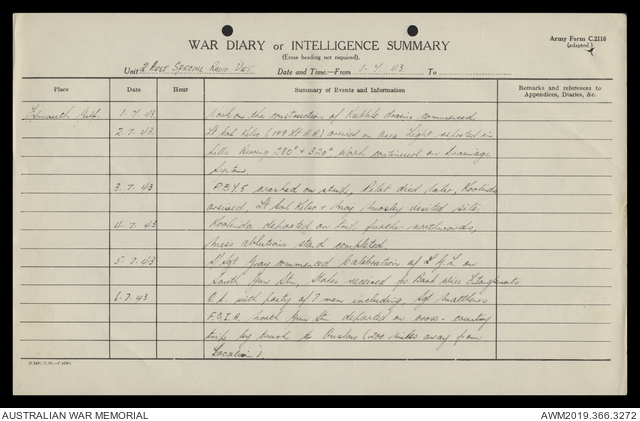 Army Form C.2118
(adapted.)
WAR DIARY or INTELLIGENCE SUMMARY
(Erase heading not required).
Unit 2 Aust Special Det. Date and Time.—From 1. 7. 43. To
Place Date Hour Summary of Events and Information Remarks and references to Appendices, Diaries, &c.
Exmouth Gulf. 1. 7. 43 Work on the construction of Rubble drains commenced
2. 7. 43. Lt Col Kelso (109 ) arrived in area. Light reported in
hills Bearing 280° & 320°. Work continued on Drainage
System.
3. 7. 43 P.B.Y.5 crashed on strip, Pilot died later, Koolinda
arrived, Lt Col Kelso & Maj Mosley visited site,
4. 7. 43 Koolinda departed on further northwards,
mess ablutions stand completed.
5. 7. 43 Sgt Gray commenced Calibration of on
South Gun Stn, Stakes received for Barb Wire Entanglements
6. 7. 43 O.C. with party of 7 men including, Sgt Matthews
North Gun Stn departed on cross-country
trip by truck to Onslow (200 miles away from
Location).
AUSTRALIAN WAR MEMORIAL
AWM2019.366.3272